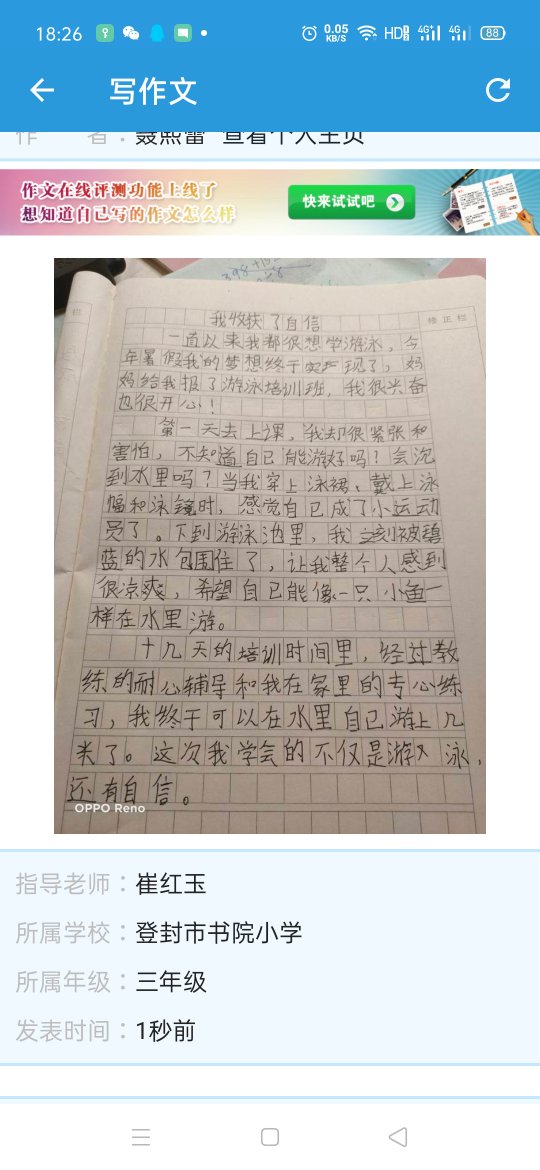 18:26
0.05
KB/S
HD
4G+
4G
88
写作文
作 者：聂熙蕾 查看个人主页
作文在线评测功能上线了
想知道自己写的作文怎么样
快来试试吧
398+10
修正栏
我收获了自信
一直以来我都很想学游泳，今
年暑假我的梦想终于实现了，妈
妈给我报了游泳培训班，我很兴奋
也很开心！
第一天去上课，我却很紧张和
害怕，不知道自己能游好吗？会沉
到水里吗？当我穿上泳裙、戴上泳
帽和泳镜时，感觉自己成了小运动
员了。下到游泳池里，我立刻被碧
蓝的水包围住了，让我整个人感到
很凉爽，希望自己能像一只小鱼一
样在水里游。
十几天的培训时间里，经过教
练的耐心辅导和我在家里的专心练
习，我终于可以在水里自己游上几
米了。这次我学会的不仅是游泳，
还有自信。
OPPO Reno
指导老师：崔红玉
所属学校：登封市书院小学
所属年级：三年级
发表时间：1秒前